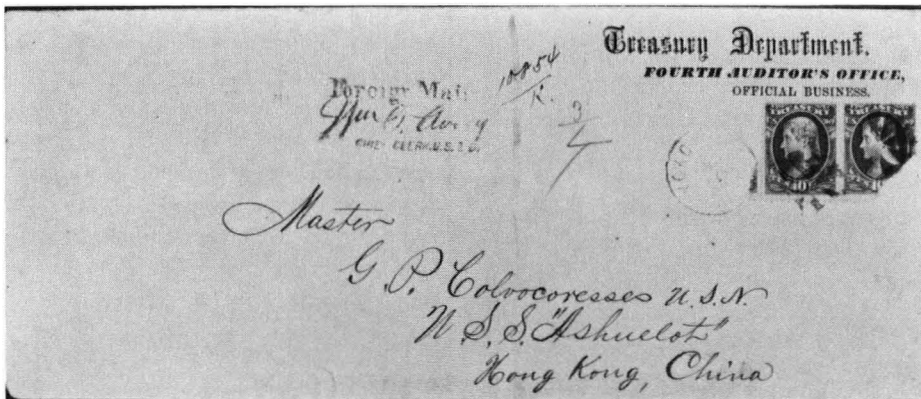 Treasury Department.
FOURTH AUDITOR'S OFFICE,
OFFICIAL BUSINESS.
Foreign Mail
10854
K.
CHIEF CLERK, U.S.T.D.
Master
G. P. Colvocoresses U.S.N.
U.S.S. "Ashuelot"
Hong Kong, China